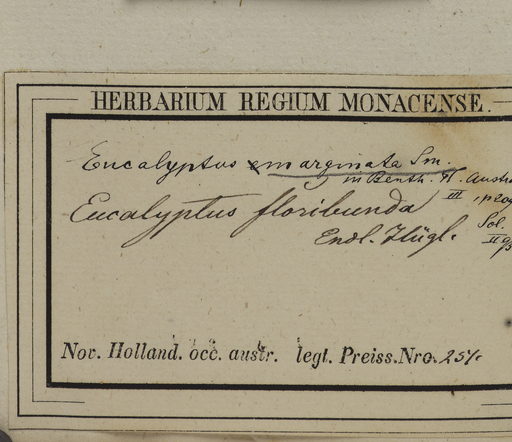 HERBARIUM REGIUM MONACENSE.
Eucalyptus emarginata Sm.
in Benth. Fl. Austra
III, p 209
Eucalyptus floribunda
Endl. Hügl.
Nov. Holland. occ. austr. legt. Preiss. Nro. 251.